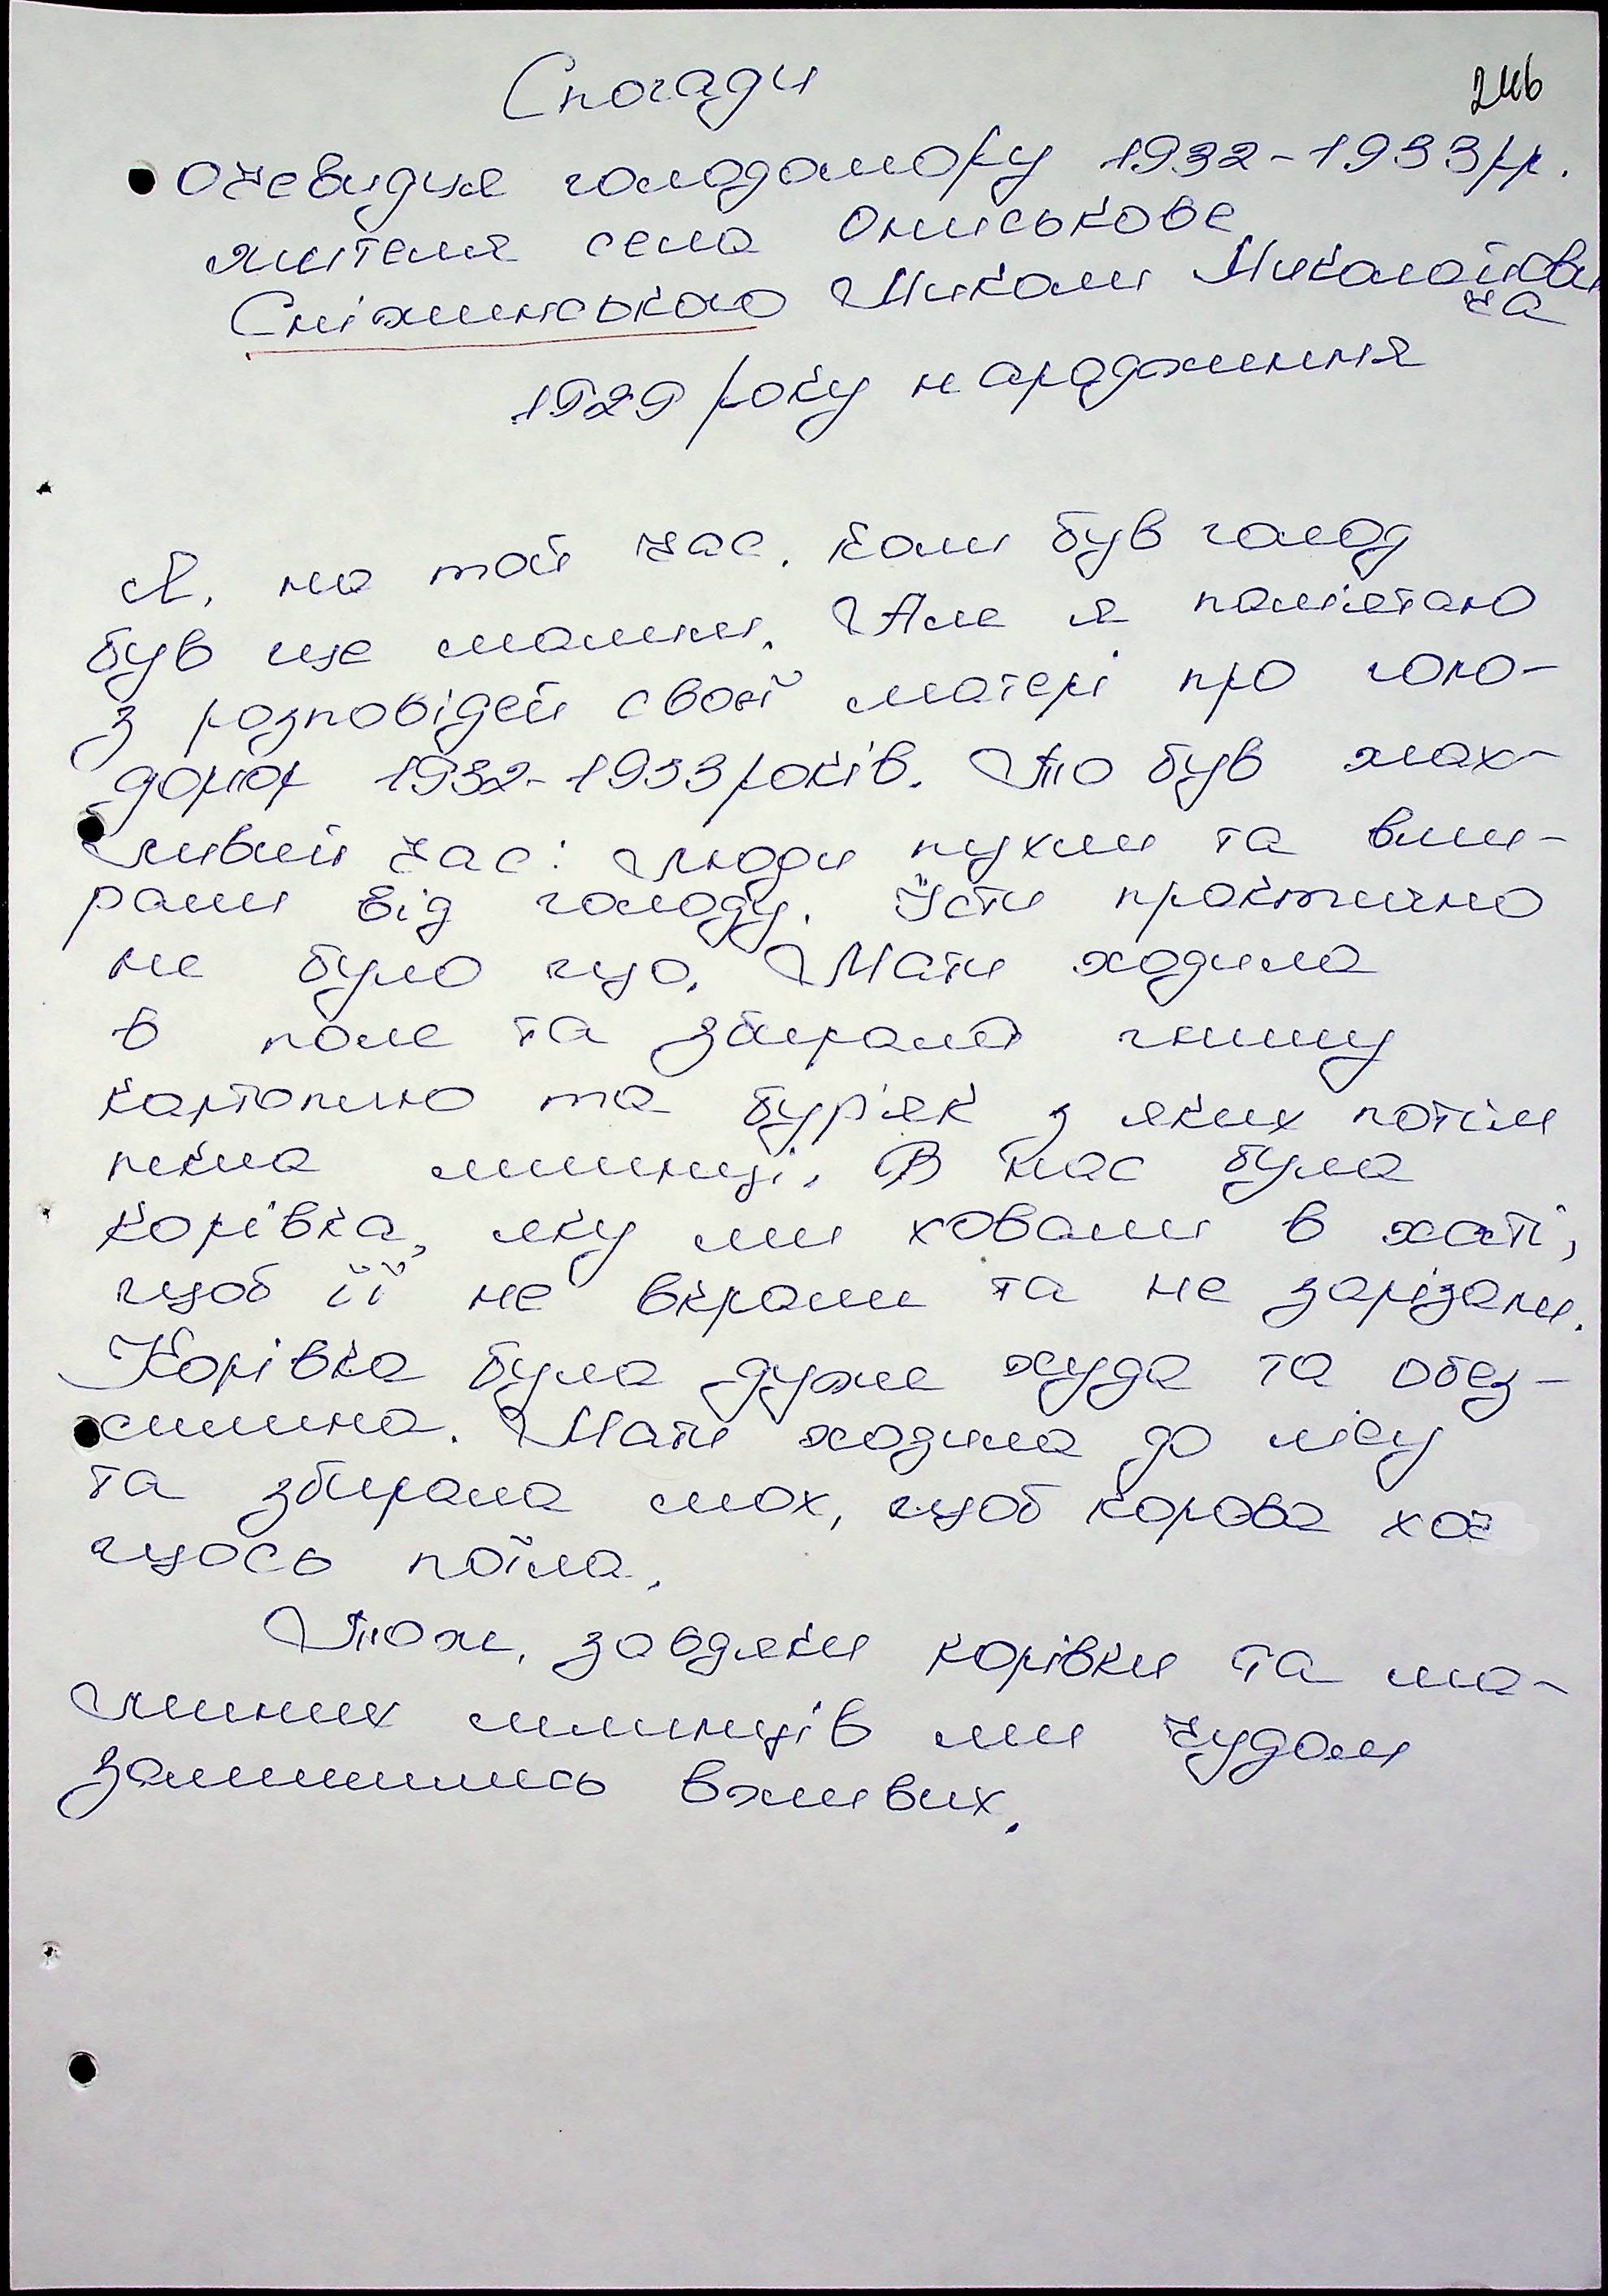 Спогади
246
очевидця голодомору 1932-1933рр.
жителя села Ониськове
Сніжинського Миколи Миколайови
ча
1929 року народження
Я, на той час, коли був голод
був ще малим. Але я пам'ятаю
з розповідей своєї матері про голо-
домор 1932-1933 років. То був жах-
ливий час: люди пухли та вми-
рали від голоду. Їсти практично
не було що. Мати ходила
в поле та збирала гнилу
картоплю та бур'як з яких потім
пекла млинці. В нас була
корівка, яку ми ховали в хаті,
щоб її не вкрали та не зарізали.
Корівка була дуже худа та обез-
силина. Мати ходила до лісу
та збирала мох, щоб корова хоч
щось поїла.
Тож, завдяки корівки та ма-
линих млинців ми чудом
залишились вживих.